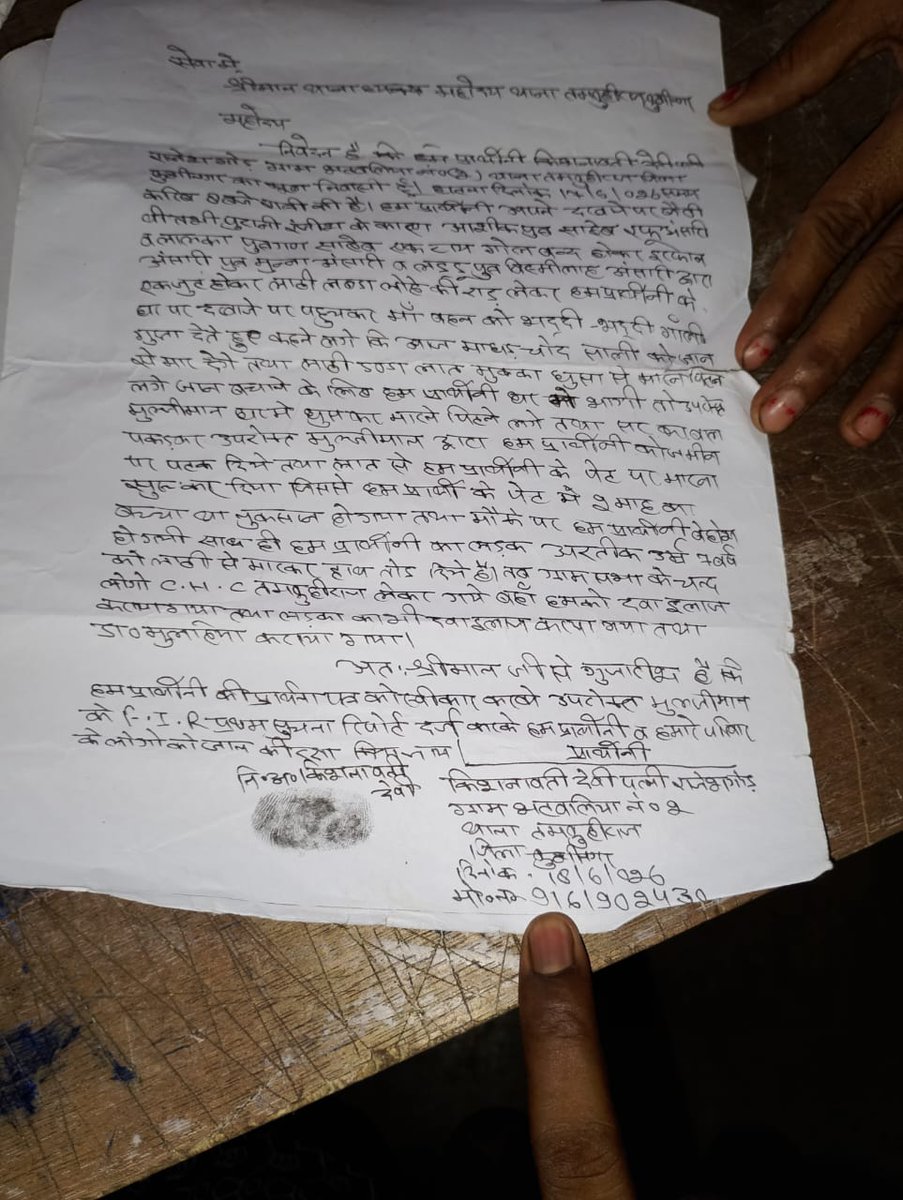 सेवा में,
श्रीमान थानाध्यक्ष महोदय थाना तमकुहीराज कुशीनगर
महोदय
निवेदन है की हम प्रार्थीनी किशनावती देवी पत्नी
राजेश गोड ग्राम भटवलिया नं०२ थाना तमकुहीराज जिला
कुशीनगर का निवासी है। घटना दिनांक 17/6/026 समय
करिब बजे की है। हम प्रार्थीनी अपने दरवाजे पर बैठी
थी तभी पुरानी रंजीश के कारण आशीक पुत्र साहेब अंसारी
व लालका पुत्रगण साहेब एक राय गोल बन्द होकर इरफान
अंसारी पुत्र मुन्ना अंसारी व लडडू पुत्र बिस्मीलाह अंसारी द्वारा
एकजुट होकर लाठी डण्डा लोहे की राड़ लेकर हम प्रार्थीनी के
घर पर दरवाजे पर पहुचकर माँ बहन की भद्दी-भद्दी गाँली
गुप्ता देते हुए कहने लगे कि आज मादर चोद साली को जान
से मार देंगे तथा लाठी डण्डा लात मुक्का घुसा से मारने पिटने
लगे जान बचाने के लिए हम प्रार्थीनी घर में भागी तो उपरोक्त
मुल्जीमान घर मे घुसकर मारने पिटने लगे तथा सर का बाल
पकड़कर उपरोक्त मुल्जीमान द्वारा हम प्रार्थीनी को जमीन
पर पटक दिये तथा लात से हम प्रार्थीनी के पेट पर मारना
सुरू कर दिया जिससे हम प्रार्थी के पेट में २ माह का
बच्चा था नुकसान हो गया तथा मौके पर हम प्रार्थीनी बेहोश
हो गयी साथ ही हम प्रार्थीनी का लड़का उम्र 7 वर्ष
को लाठी से मारकर हाथ तोड़ दिये है। तब ग्राम सभा के चन्द
लोगो C.H.C तमकुहीराज लेकर गये वहाँ हमको दवा इलाज
कराया गया तथा लड़का का भी दवा इलाज कराया गया तथा
डा० मुलाहेजा कराया गया।
अतः श्रीमान जी से गुजारीश है कि
हम प्रार्थीनी की प्रार्थना पत्र को स्वीकार करके उपरोक्त मुल्जीमान
के F.I.R प्रथम सुचना रिपोर्ट दर्ज करके हम प्रार्थीनी व हमारे परिवार
के लोगो को जान की रक्षा किया जाय।
प्रार्थीनी
नि०अ० किशनावती
देवी
किशनावती देवी पत्नी राजेश गोड़
ग्राम भटवलिया नं०२
थाना तमकुहीराज
जिला कुशीनगर
दिनांक - 18/6/026
मो०नं० 9161902430